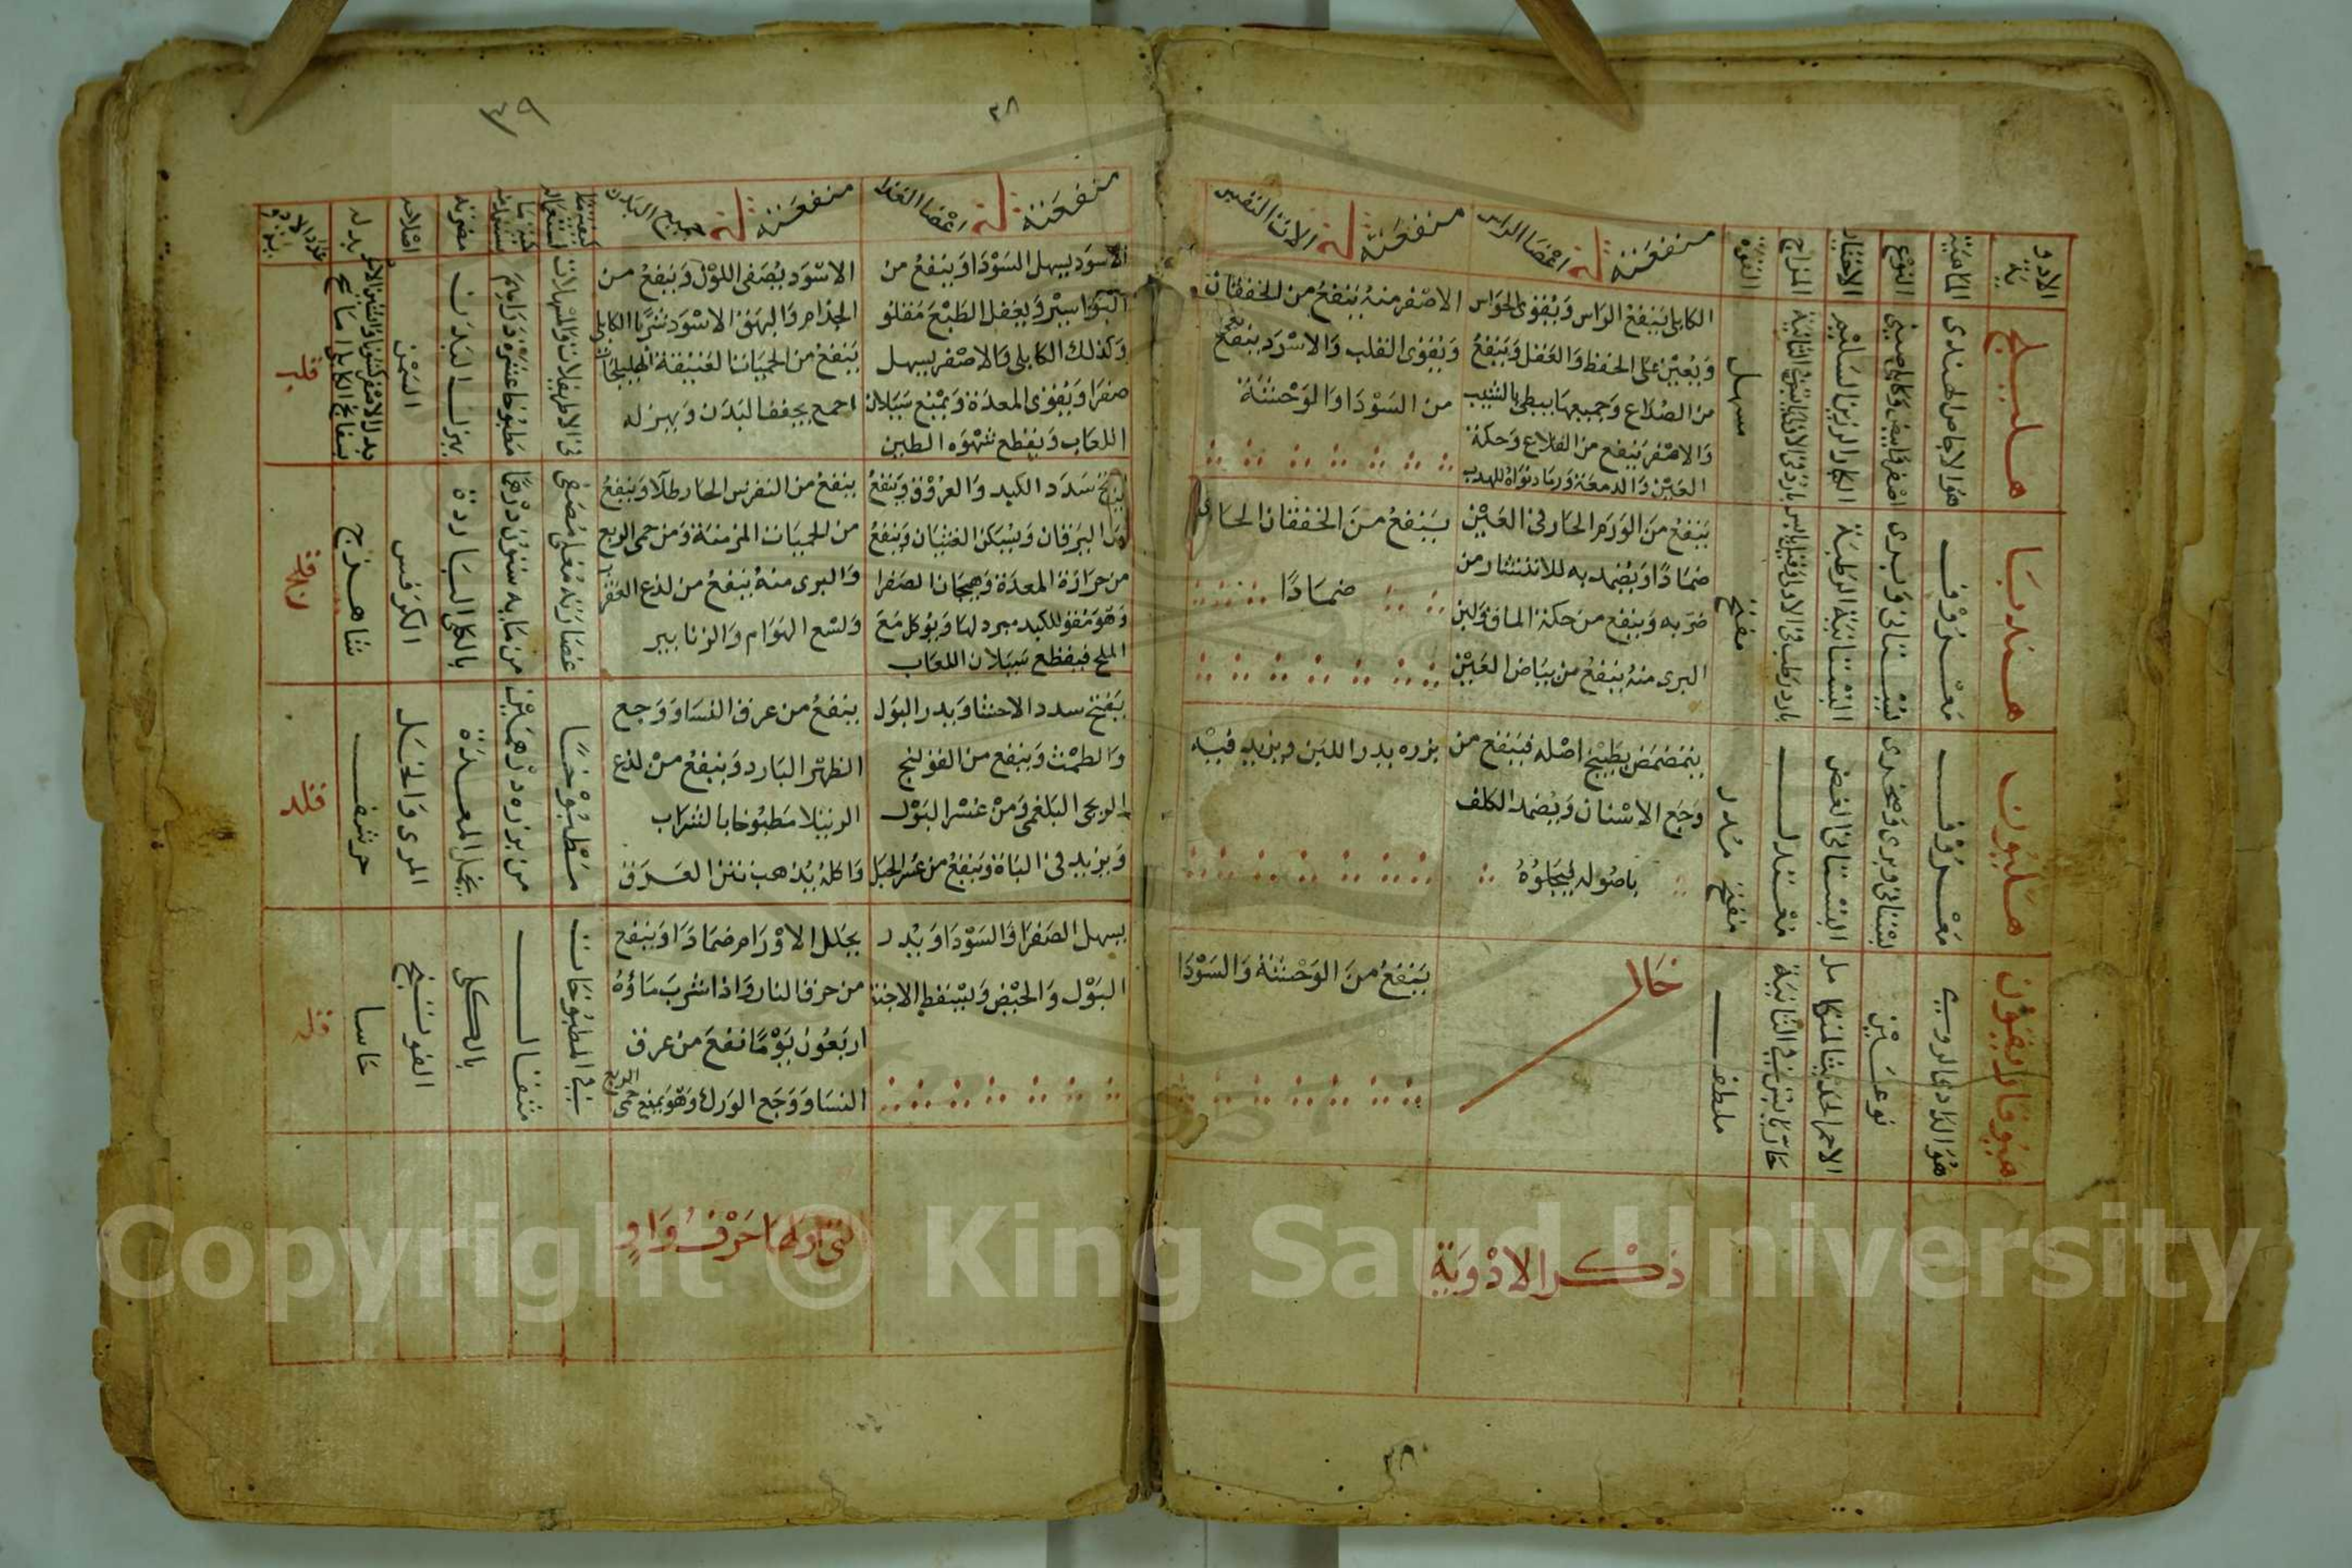 الادوية
الماهية
النوع
الاختيار
المزاج
القوة
منفعته في اعضا الراس
منفعته في الات النفس
هليلج
هو الاجاص الهندى
اصفر وابيض وكابلي وصيني
الكبار الرزين السليم
مسهل
الكابلي ينفع الراس ويقوى الحواس
ويعين على الحفظ والعقل وينفع
من الصداع وجميعها يبطي بالشيب
والاصفر ينفع من القلاع وحكة
العين والدمعة ورماد نواه للهدب
الاصفر منه ينفع من الخفقان
ويقوى القلب والاسود ينفع
من السودا والوحشة
هندبا
معروف
بستاني وبرى
البستانية الرطبة
مفتح
ينفع من الورم الحار في العين
ضمادا ويضمد به للانتشار من
ضربه وينفع من حكة الماق ولبن
البرى منه ينفع من بياض العين
ينفع من الخفقان الحار
ضمادا
هليون
معروف
بستاني وبرى وصخرى
البستاني الغض
معتدل
مفتح مدر
يتمضمض بطبيخ اصله فينفع من
وجع الاسنان ويضمد الكلف
باصوله فيجلوه
بزره يدر اللبن ويزيد فيه
هيوفاريقون
هو الدادى الرومي
نوعين
الاحمر الحديث المتكامل
حار يابس في الثانية
ملطف
خال
ينفع من الوحشة والسودا
ذكر الادوية
٣٨
٣٨
٣٩
منفعته في اعضا الغذا
منفعته في جميع البدن
كيفية استعماله
كمية ما يستعمل منه
مضرته
اصلاحه
بدله
عدد الادوية
الاسود يسهل السودا وينفع من
البواسير ويعقل الطبع مقلو
وكذلك الكابلي والاصفر يسهل
صفرا ويقوى المعدة ويمنع سيلان
اللعاب ويقطع شهوه الطين
الاسود يصفى اللون وينفع من
الجذام والبهق الاسود شربا الكابلي
ينفع من الحميات العتيقة الهليلجات
اجمع يجفف البدن ويهزله
في الاطريفلات والمسهلات
مطبوخا عشرة دراهم
يهزل البدن
السمن
ينفع سدد الكبد والعروق وينفع
من اليرقان ويسكن الغثيان وينفع
من حرارة المعدة وهيجان الصفرا
وهو مقو للكبد مبرد لها ويوكل مع
الملح فيقطع سيلان اللعاب
ينفع من النقرس الحار طلا وينفع
من الحميات المزمنة ومن حمى الربع
والبرى منه ينفع من لذع العقرب
ولسع الهوام والزنابير
عصارته مغلي مصفى
من مايه ستون درهما
بالكلي الباردة
الكرفس
شاهترج
يفتح سدد الاحشا ويدر البول
والطمث وينفع من القولنج
الريحى البلغمى ومن عسر البول
ويزيد في الباة وينفع من عسر الحبل
ينفع من عرق النسا ووجع
الظهر البارد وينفع من لذع
الرتيلا مطبوخا بالشراب
واكله يذهب نتن العرق
مطبوخا
من بزره درهمين
المعدة
المرى والخل
حرشف
يسهل الصفرا والسودا ويدر
البول والحيض ويسقط الاجنة
يحلل الاورام ضمادا وينفع
من حرق النار واذا شرب ماؤه
اربعون يوما نفع من عرق
النسا ووجع الورك وهو يمنع حمى الربع
في المطبوخات
مثقال
بالكلى
الفوتنج
حاسا
التي اولها حرف واو
Copyright © King Saud University
1957